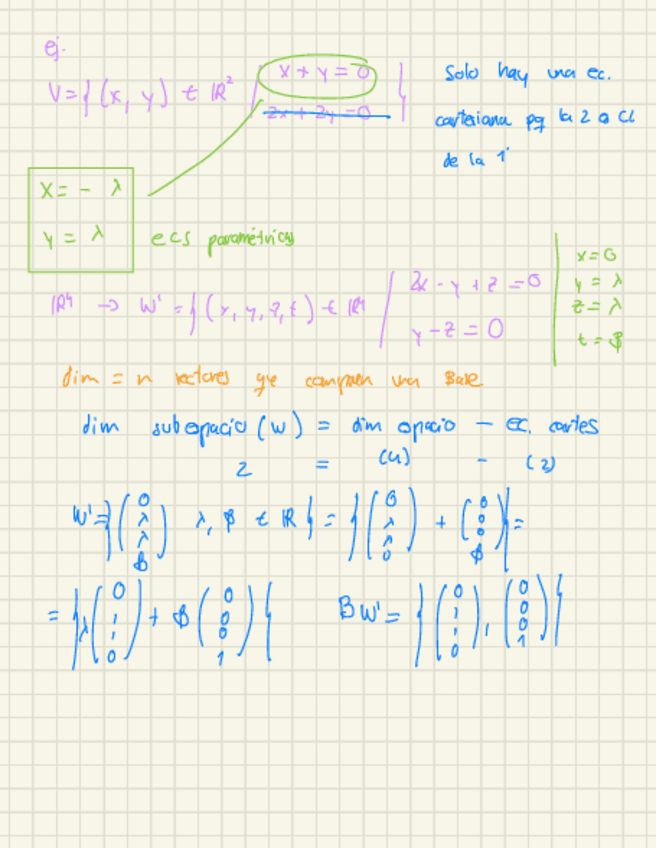 ej.
V = { (x, y) ∈ IR² / x + y = 0
2x + 2y = 0 }
Solo hay una ec.
cartesiana pq la 2 es CL
de la 1ª
x = - λ
y = λ
ecs paramétricas
IR⁴ → W' = { (x, y, z, t) ∈ IR⁴ / 2x - y + z = 0
y - z = 0
x = 0
y = λ
z = λ
t = β
dim = n vectores que componen una Base
dim subespacio (W) = dim espacio - ec. cartes
2 = (4) - (2)
W' = { (0 λ λ β) λ, β ∈ IR } = { (0 λ λ 0) + (0 0 0 β) } =
= { λ (0 1 1 0) + β (0 0 0 1) }
BW' = { (0 1 1 0), (0 0 0 1) }